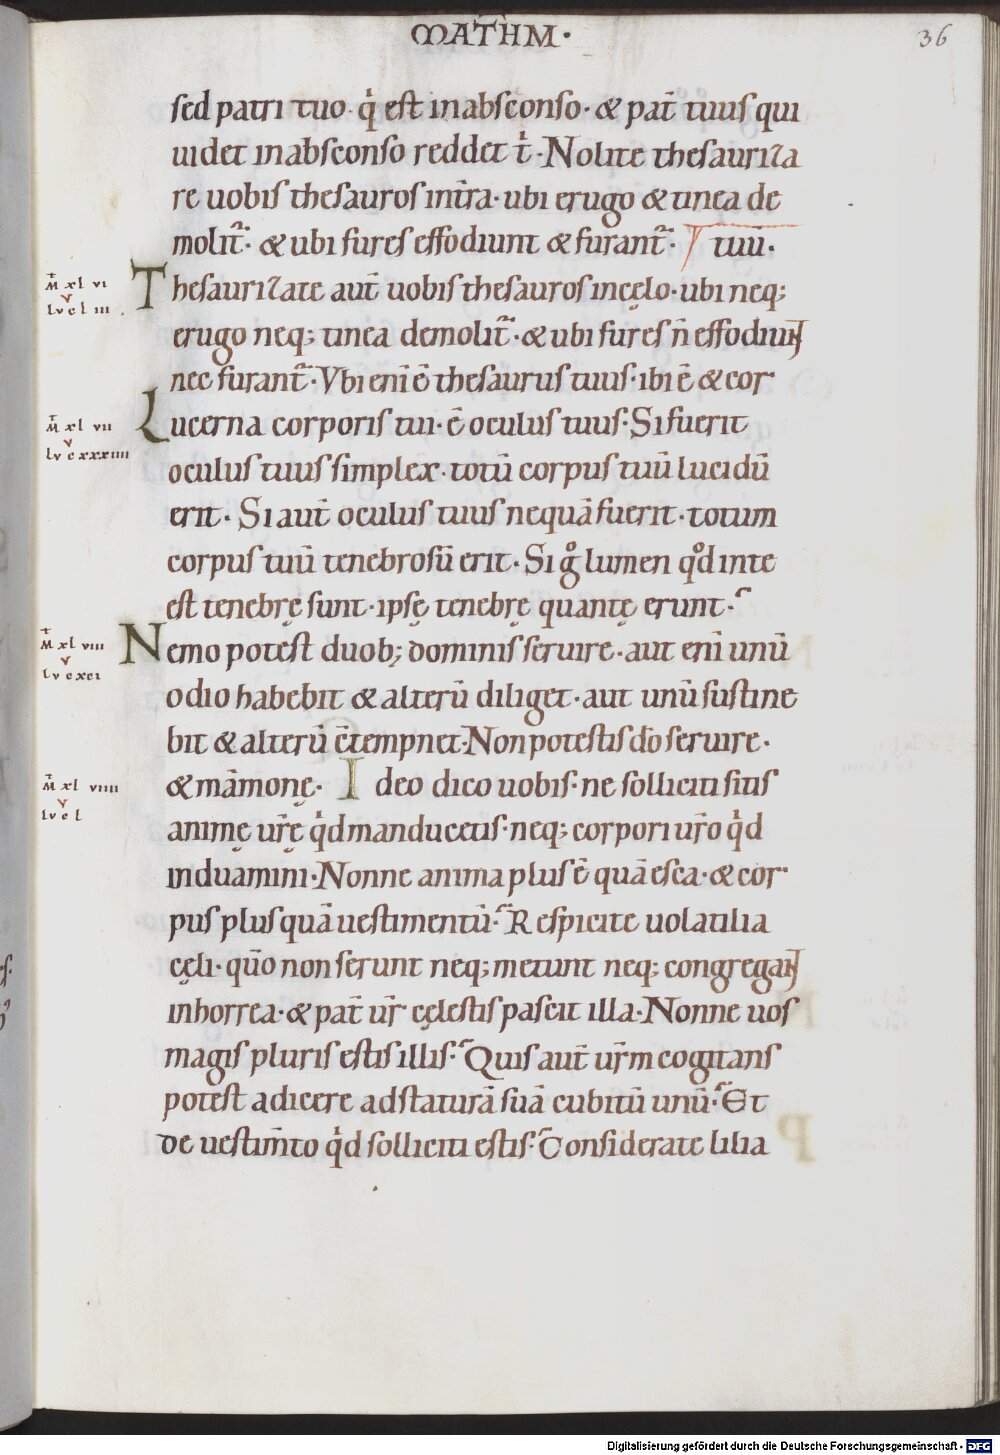 MATHM·
36
sed patri tuo· q̇ est in absconso· & pat̄ tuus qui
uidet in absconso reddet t̍· Nolite thesauriza
re uobis thesauros in tr̄a· ubi erugo & tinea de
molit᷑· & ubi fures effodiunt & furant᷑· tuū·
M̄ xl vi
Thesaurizate aut̄ uobis thesauros in cęlo· ubi neq;
lvc liii
erugo neq; tinea demolit᷑· & ubi fures n̄ effodiunt
nec furant᷑· Vbi eni ē thesaurus tuus· ibi ē & cor
M̄ xl vii
Lucerna corporis tui· ē oculus tuus· Si fuerit
lvc xxxiiii
oculus tuus simplex· totū corpus tuū lucidū
erit· Si aut̄ oculus tuus nequā fuerit· totum
corpus tuū tenebrosū erit· Si gͦ lumen qͦd in te
est tenebrę sunt· ipsę tenebrę quantę erunt·
M̄ xl viii
Nemo potest duob; dominis seruire· aut eni unū
lvc xci
odio habebit & alterū diliget· aut unū sustine
bit & alterū c̄tempnet· Non potestis do seruire·
M̄ xl viiii
& mām̄onę· Ideo dico uobis· ne solliciti sitis
lvc l
animę ur̄ę qͥd manducetis· neq; corpori ur̄o qͥd
induamini· Nonne anima plus ē quā esca· & cor
pus plus quā uestimentū· Respicite uolatilia
cęli· qūo non serunt neq; metunt neq; congregant
in horrea· & pat̄ ur̄ cęlestis pascit illa· Nonne uos
magis pluris estis illis· Quis aut̄ ur̄m cogitans
potest adicere ad staturā suā cubitū unū· Et
de uestim̄to qͥd solliciti estis· Considerate lilia
Digitalisierung gefördert durch die Deutsche Forschungsgemeinschaft - DFG